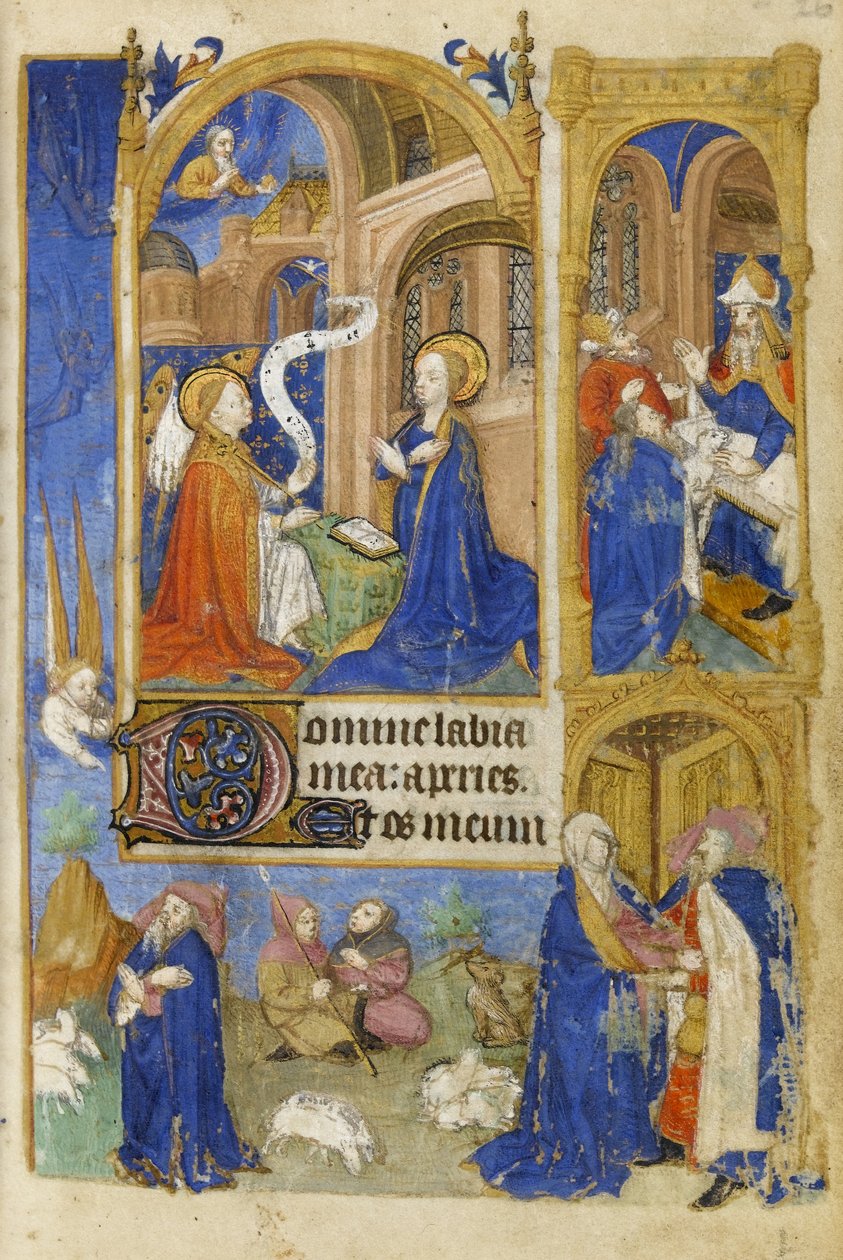 26
Domine labia
mea: aperies.
Et os meum